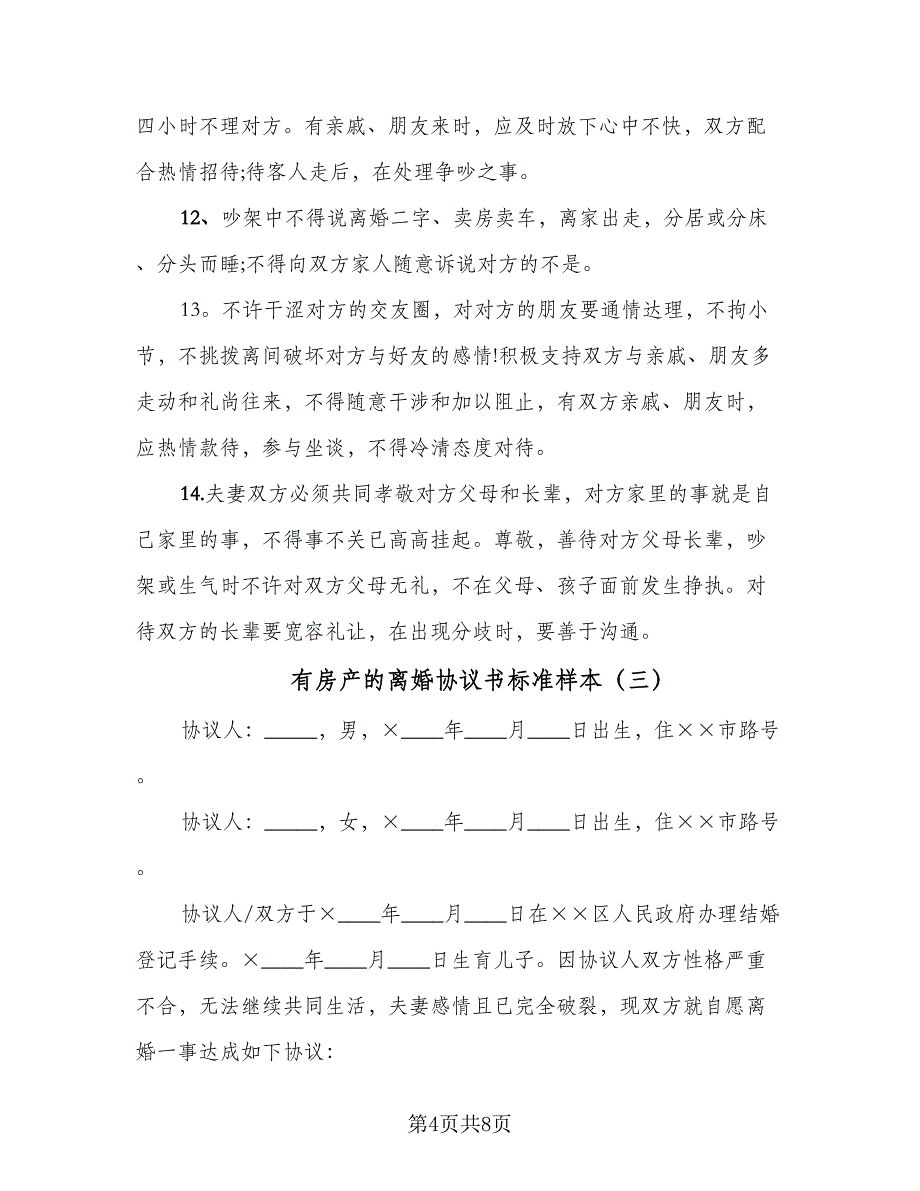 四小时不理对方。有亲戚、朋友来时，应及时放下心中不快，双方配
合热情招待;待客人走后，在处理争吵之事。
12、吵架中不得说离婚二字、卖房卖车，离家出走，分居或分床
、分头而睡;不得向双方家人随意诉说对方的不是。
13。不许干涩对方的交友圈，对对方的朋友要通情达理，不拘小
节，不挑拨离间破坏对方与好友的感情!积极支持双方与亲戚、朋友多
走动和礼尚往来，不得随意干涉和加以阻止，有双方亲戚、朋友时，
应热情款待，参与坐谈，不得冷清态度对待。
14.夫妻双方必须共同孝敬对方父母和长辈，对方家里的事就是自
己家里的事，不得事不关已高高挂起。尊敬，善待对方父母长辈，吵
架或生气时不许对双方父母无礼，不在父母、孩子面前发生挣执。对
待双方的长辈要宽容礼让，在出现分歧时，要善于沟通。
有房产的离婚协议书标准样本（三）
协议人：_____，男，×____年____月____日出生，住××市路号
。
协议人：_____，女，×____年____月____日出生，住××市路号
。
协议人/双方于×____年____月____日在××区人民政府办理结婚
登记手续。×____年____月____日生育儿子。因协议人双方性格严重
不合，无法继续共同生活，夫妻感情且已完全破裂，现双方就自愿离
婚一事达成如下协议：
第4页共8页